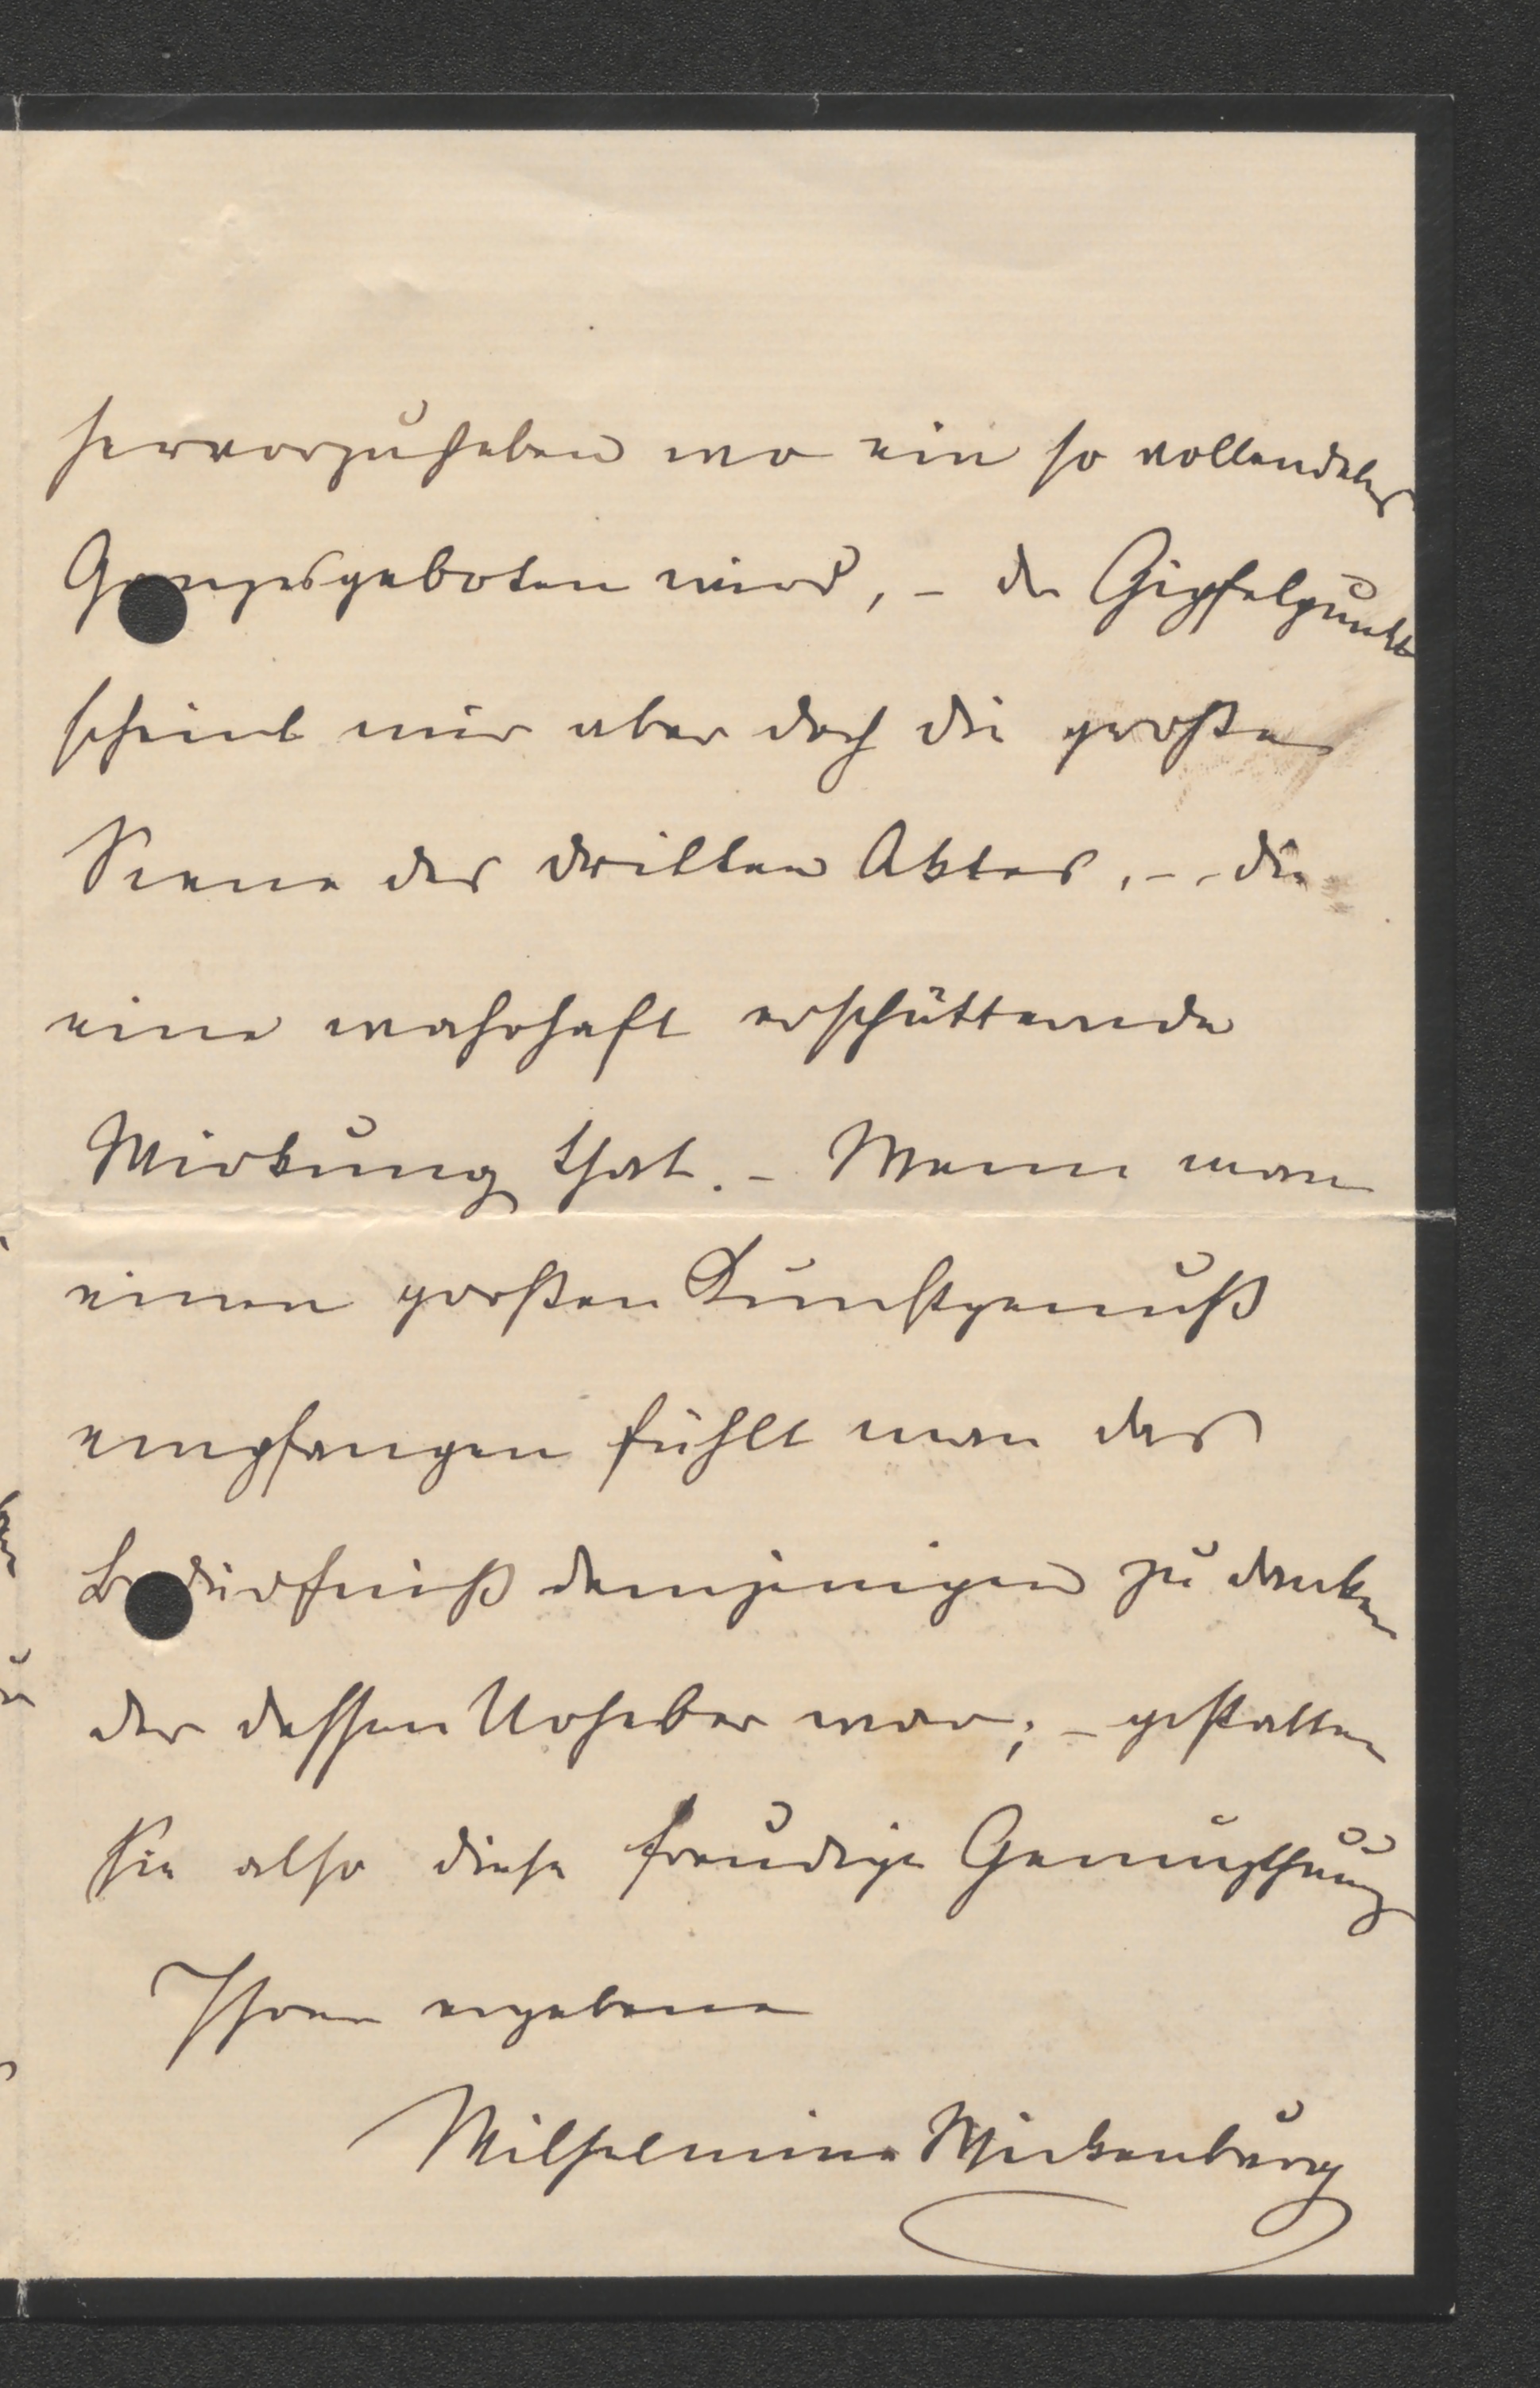 hervorzuheben wo ein so vollendetes
Ganzes geboten wird, - der Gipfelpunkt
scheint mir aber doch die große
Scene des dritten Aktes, - - die
eine wahrhaft erschütternde
Wirkung that. - Wenn man
einen großen Kunstgenuß
empfangen fühlt man das
Bedürfniß demjenigen zu danken
der dessen Urheber war; - gestatten
Sie also diese freudige Genugthuung
Ihrer ergebene
Wilhelmine Wickenburg